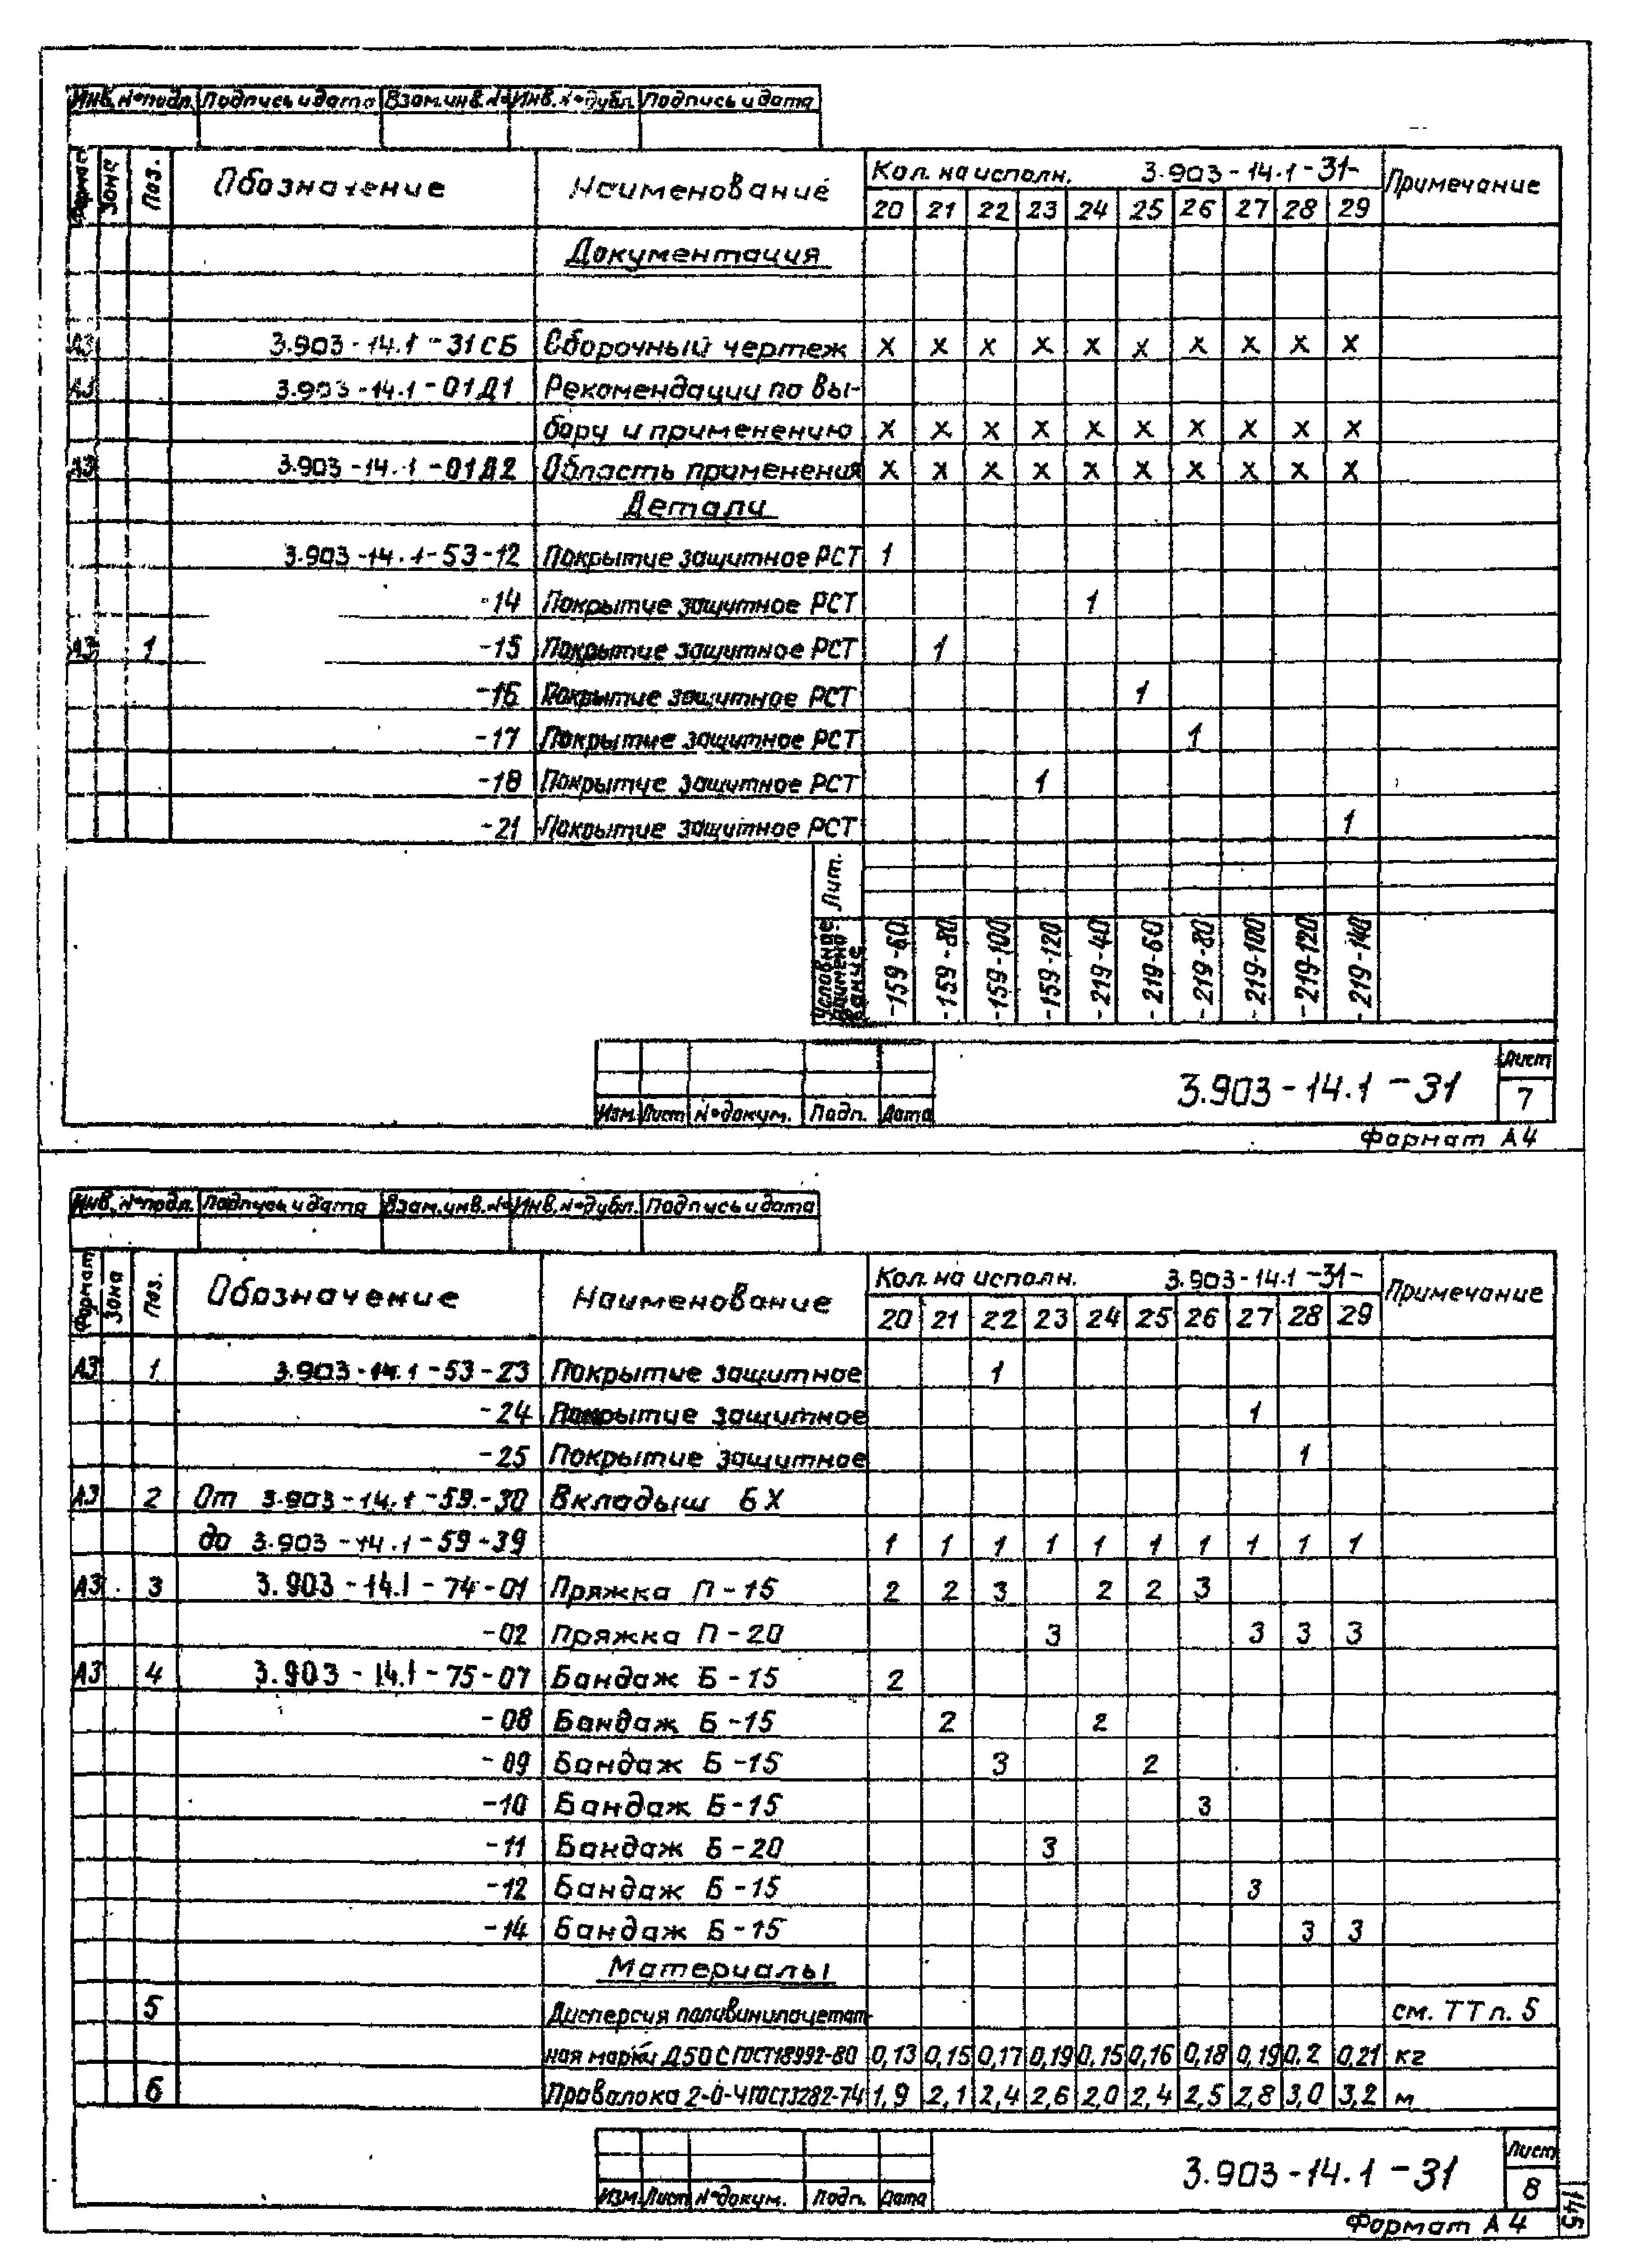 Инв. № подл. Подпись и дата Взам. инв. № Инв. № дубл. Подпись и дата
Формат Зона Поз. Обозначение Наименование Кол. на исполн. 3.903-14.1-31- Примечание
20 21 22 23 24 25 26 27 28 29
Документация
А3 3.903-14.1-31СБ Сборочный чертеж х х х х х х х х х х
А3 3.903-14.1-01Д1 Рекомендации по вы-
бору и применению х х х х х х х х х х
А3 3.903-14.1-01Д2 Область применения х х х х х х х х х х
Детали
3.903-14.1-53-12 Покрытие защитное РСТ 1
-14 Покрытие защитное РСТ 1
А3 1 -15 Покрытие защитное РСТ 1
-16 Покрытие защитное РСТ 1
-17 Покрытие защитное РСТ 1
-18 Покрытие защитное РСТ 1
-21 Покрытие защитное РСТ 1
Лит.
Условное наимено-вание -159-60 -159-80 -159-100 -159-120 -219-40 -219-60 -219-80 -219-100 -219-120 -219-140
3.903-14.1-31 Лист
7
Изм. Лист № докум. Подп. Дата
Формат А4
Инв. № подл. Подпись и дата Взам. инв. № Инв. № дубл. Подпись и дата
Формат Зона Поз. Обозначение Наименование Кол. на исполн. 3.903-14.1-31- Примечание
20 21 22 23 24 25 26 27 28 29
А3 1 3.903-14.1-53-23 Покрытие защитное 1
-24 Покрытие защитное 1
-25 Покрытие защитное 1
А3 2 От 3.903-14.1-59-30 Вкладыш БХ
до 3.903-14.1-59-39 1 1 1 1 1 1 1 1 1 1
А3 3 3.903-14.1-74-01 Пряжка П-15 2 2 3 2 2 3
-02 Пряжка П-20 3 3 3 3
А3 4 3.903-14.1-75-07 Бандаж Б-15 2
-08 Бандаж Б-15 2 2
-09 Бандаж Б-15 3 2
-10 Бандаж Б-15 3
-11 Бандаж Б-20 3
-12 Бандаж Б-15 3
-14 Бандаж Б-15 3 3
Материалы
5 Дисперсия поливинилацетат- см. ТТ п. 5
ная марки Д50С ГОСТ18992-80 0,13 0,15 0,17 0,19 0,15 0,16 0,18 0,19 0,2 0,21 кг
6 Проволока 2-0-Ч ГОСТ3282-74 1,9 2,1 2,4 2,6 2,0 2,4 2,5 2,8 3,0 3,2 м
3.903-14.1-31 Лист
8
Изм. Лист № докум. Подп. Дата
Формат А4
145